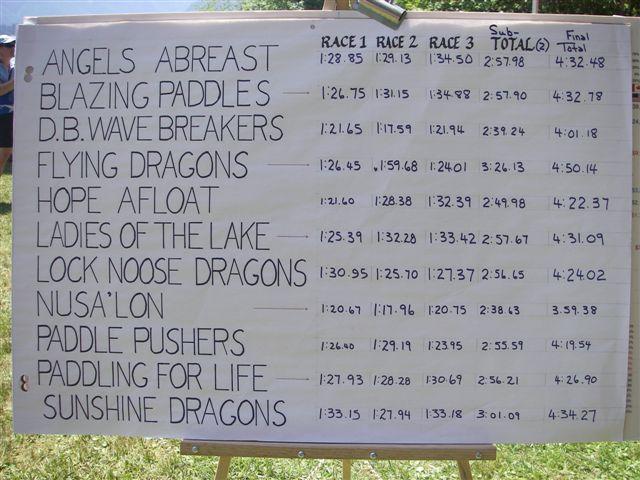 RACE 1 RACE 2 RACE 3 Sub-TOTAL(2) Final Total
ANGELS ABREAST 1:28.85 1:29.13 1:34.50 2:57.98 4:32.48
BLAZING PADDLES 1:26.75 1:31.15 1:34.88 2:57.90 4:32.78
D.B. WAVE BREAKERS 1:21.65 1:17.59 1:21.94 2:39.24 4:01.18
FLYING DRAGONS 1:26.45 1:59.68 1:24.01 3:26.13 4:50.14
HOPE AFLOAT 1:21.60 1:28.38 1:32.39 2:49.98 4:22.37
LADIES OF THE LAKE 1:25.39 1:32.28 1:33.42 2:57.67 4:31.09
LOCK NOOSE DRAGONS 1:30.95 1:25.70 1:27.37 2:56.65 4:24.02
NUSA'LON 1:20.67 1:17.96 1:20.75 2:38.63 3.59.38
PADDLE PUSHERS 1:26.40 1:29.19 1:23.95 2:55.59 4:19.54
PADDLING FOR LIFE 1:27.93 1:28.28 1:30.69 2:56.21 4:26.90
SUNSHINE DRAGONS 1:33.15 1:27.94 1:33.18 3:01.09 4:34.27